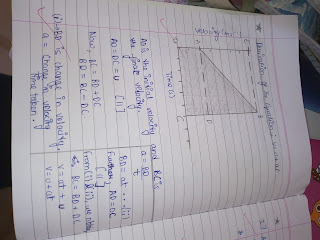 ★ Derivation of the Equation :- v = u + at
Velocity
Time (s)
D
C
AO is the initial velocity and BC is
the final velocity.
AO = DC = u [1]
Now, BC = BD + DC
BD = BC - DC
(ii) BD is change in velocity.
a = Change in velocity
Time taken.
a = BD
t
BD = at ...(ii)
Further, AO = DC
[1]
From (i) & (ii), we have
BC = BD + DC
v = at + u
v = u + at